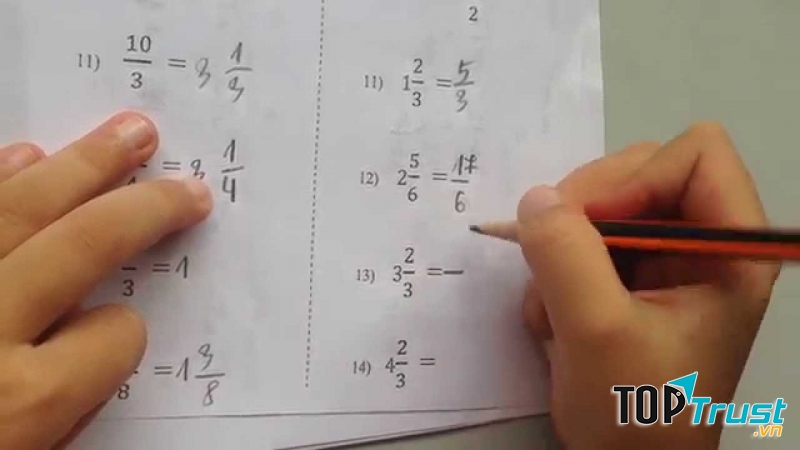 11) 10/3 = 3 1/3
= 3 1/4
3 = 1
8 = 1 3/8
2
11) 1 2/3 = 5/3
12) 2 5/6 = 17/6
13) 3 2/3 = —
14) 4 2/3 =
TOPTrust
.vn